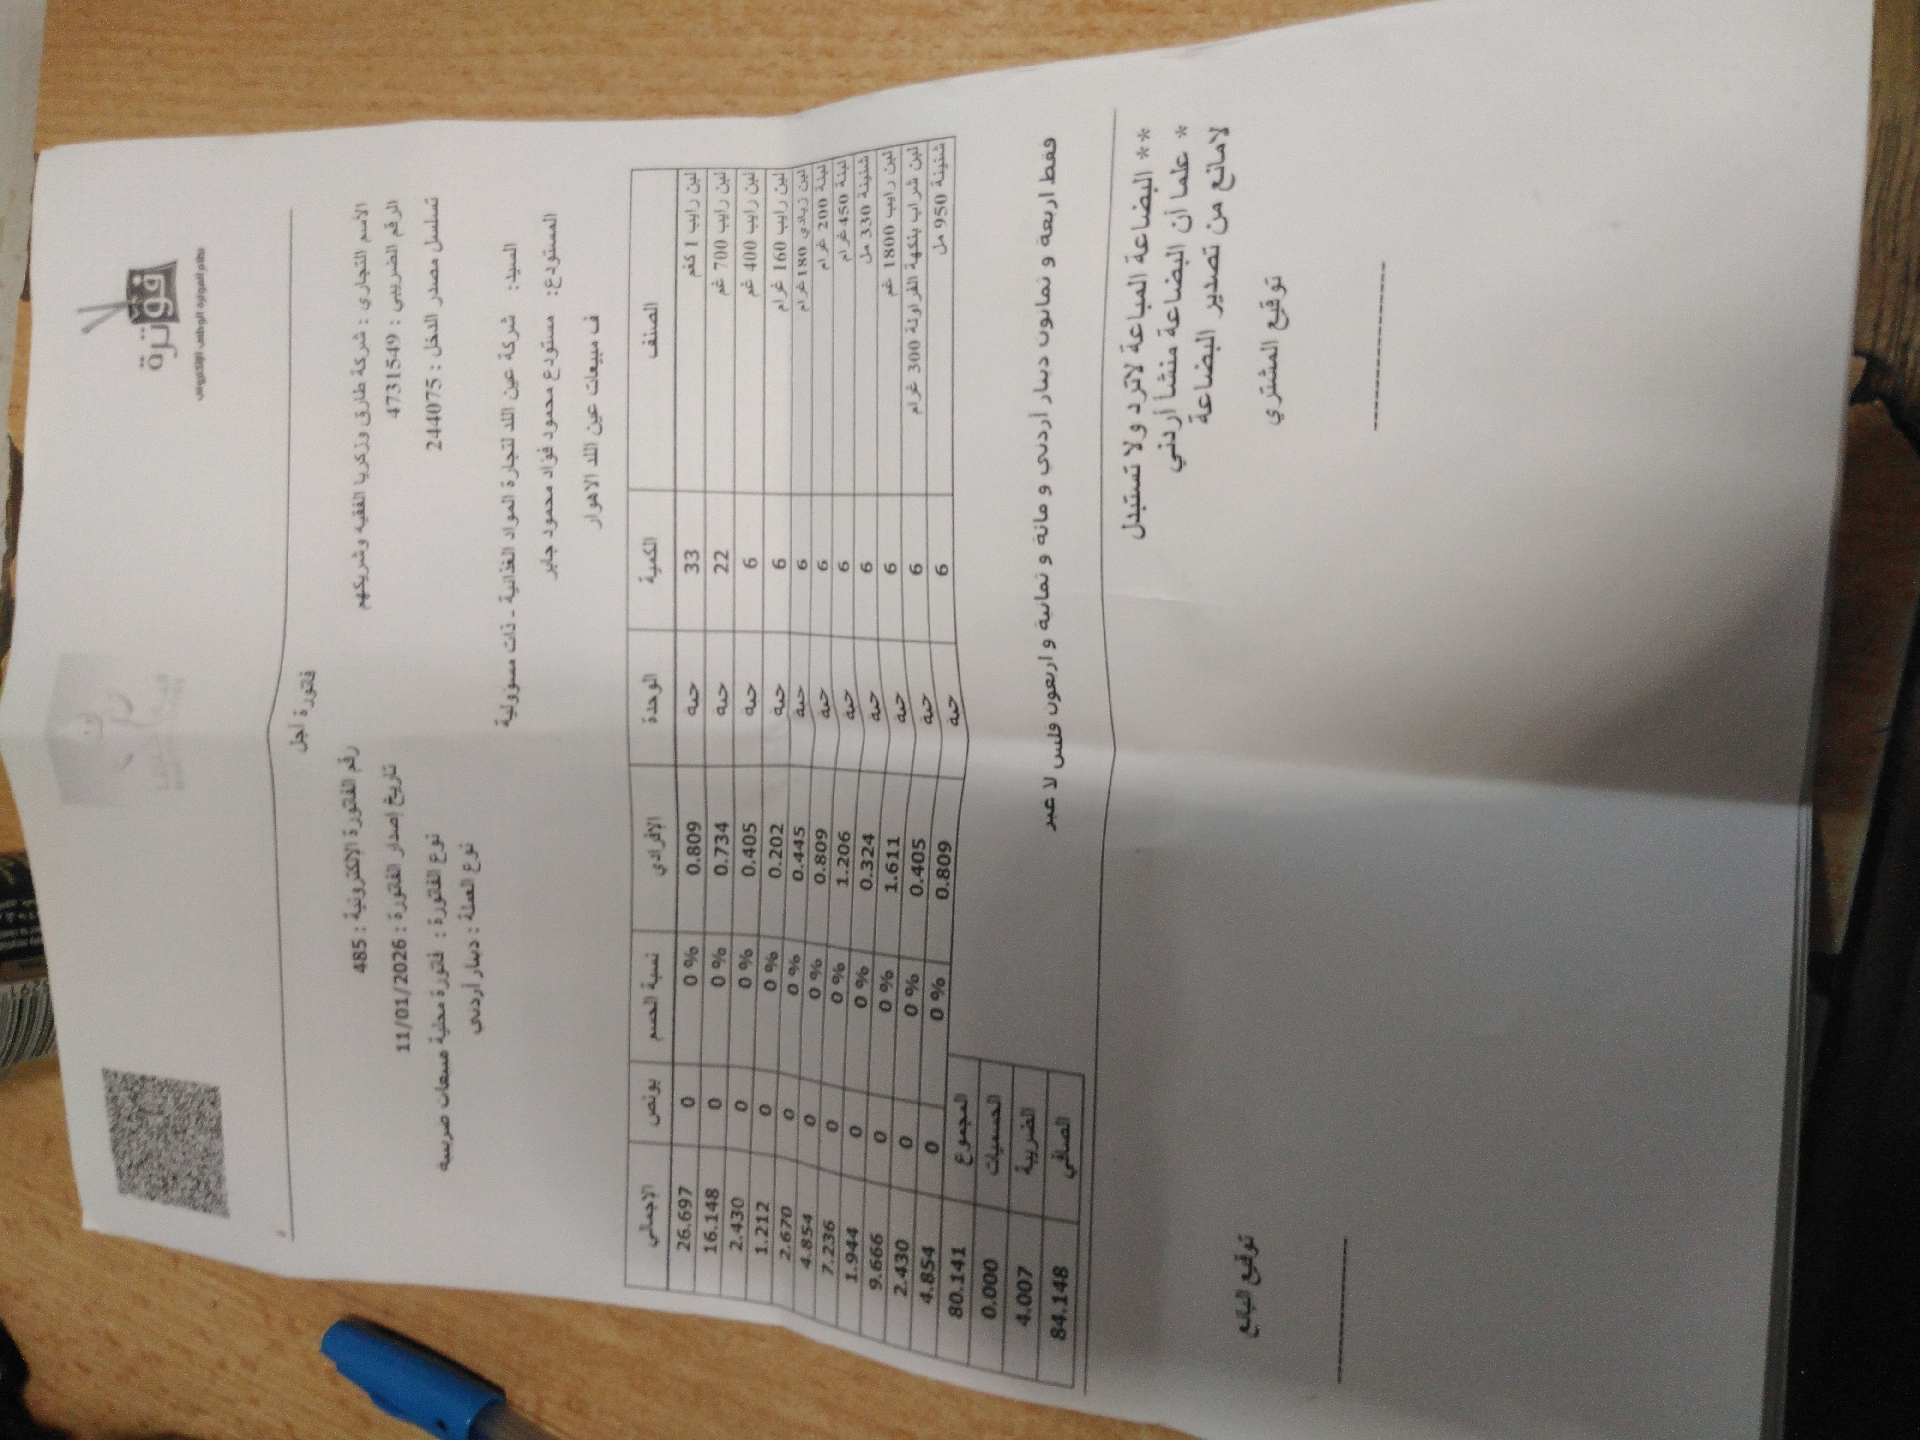 فوترة
نظام الفوترة الوطني الإلكتروني
فاتورة آجل
الاسم التجاري : شركة طارق وزكريا الفقيه وشريكهم
رقم الفاتورة الإلكترونية : 485
الرقم الضريبي : 4731549
تاريخ إصدار الفاتورة : 11/01/2026
تسلسل مصدر الدخل : 244075
نوع الفاتورة : فاتورة محلية مبيعات ضريبية
نوع العملة : دينار أردني
السيد: شركة عين اللد لتجارة المواد الغذائية - ذات مسؤولية
المستودع: مستودع محمود فؤاد محمود جابر
ف مبيعات عين اللد الاهوار
الصنف الكمية الوحدة الإفرادي نسبة الحسم بونص الاجمالي
لبن رايب 1 كغم 33 حبه 0.809 0 % 0 26.697
لبن رايب 700 غم 22 حبه 0.734 0 % 0 16.148
لبن رايب 400 غم 6 حبه 0.405 0 % 0 2.430
لبن رايب 160 غرام 6 حبه 0.202 0 % 0 1.212
لبن زبادي 180 غرام 6 حبة 0.445 0 % 0 2.670
لبنة 200 غرام 6 حبة 0.809 0 % 0 4.854
لبنة 450 غرام 6 حبة 1.206 0 % 0 7.236
شنينة 330 مل 6 حبة 0.324 0 % 0 1.944
لبن رايب 1800 غم 6 حبة 1.611 0 % 0 9.666
لبن شراب بنكهة الفراولة 300 غرام 6 حبة 0.405 0 % 0 2.430
شنينة 950 مل 6 حبة 0.809 0 % 0 4.854
المجموع 80.141
الحسميات 0.000
الضريبة 4.007
الصافي 84.148
فقط اربعة و ثمانون دينار أردني و مائة و ثمانية و اربعون فلس لا غير
** البضاعة المباعة لاترد ولا تستبدل
* علما أن البضاعة منشأ أردني
لامانع من تصدير البضاعة
توقيع المشتري
توقيع البائع